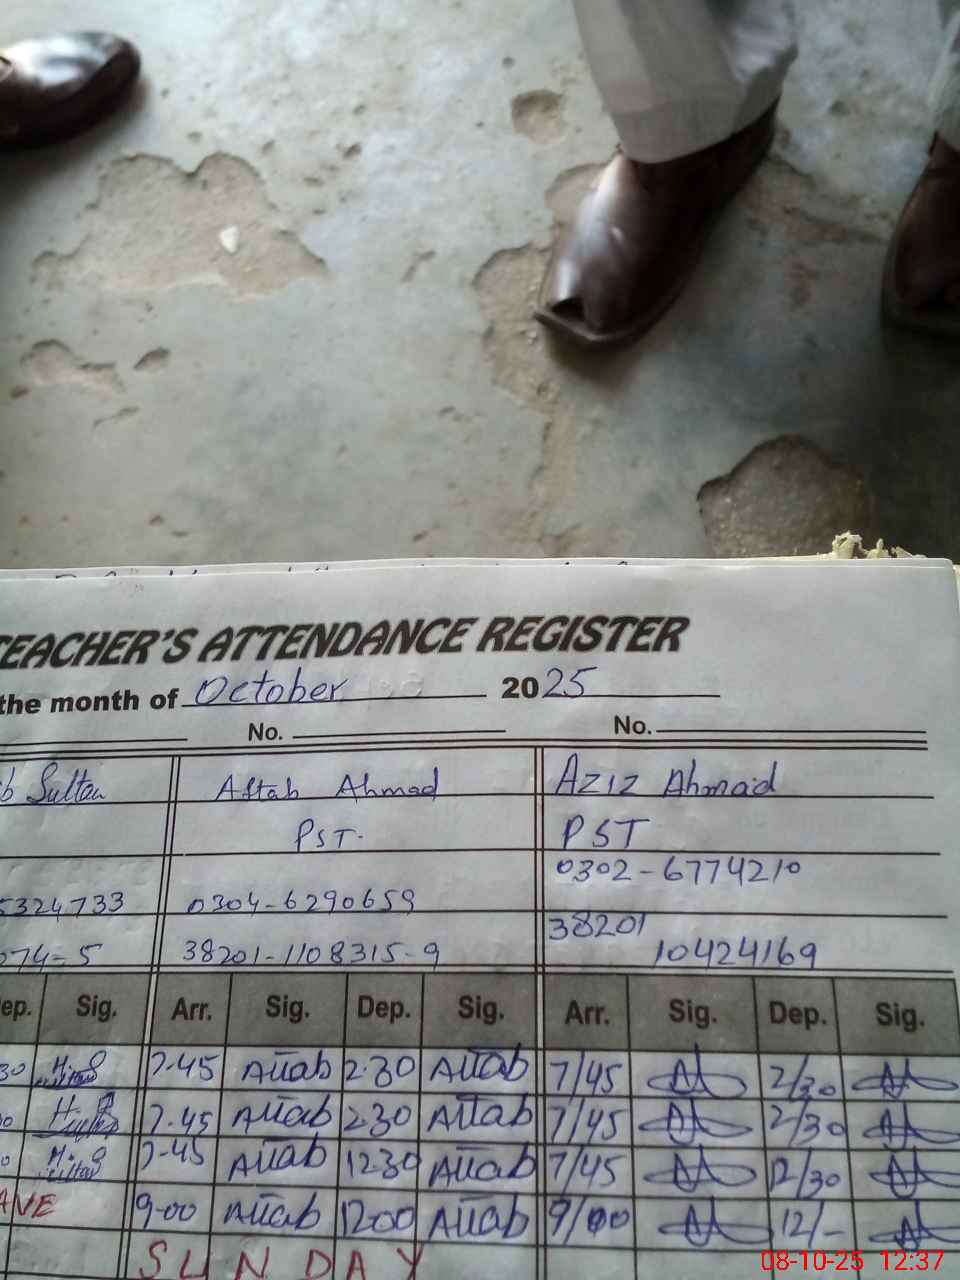 TEACHER'S ATTENDANCE REGISTER
the month of October 2025
No. No.
b Sultan Aftab Ahmad Aziz Ahmad
PST. PST
5324733 0304-6290659 0302-6774210
074-5 38201-1108315-9 38201 10424169
Dep. Sig. Arr. Sig. Dep. Sig. Arr. Sig. Dep. Sig.
30 7.45 Aftab 2.30 Aftab 7/45 2/30
7.45 Aftab 230 Aftab 7/45 2/30
7.45 Aftab 1230 Aftab 7/45 12/30
9.00 Aftab 1200 Aftab 9/00 12/-
SUNDAY
08-10-25 12:37